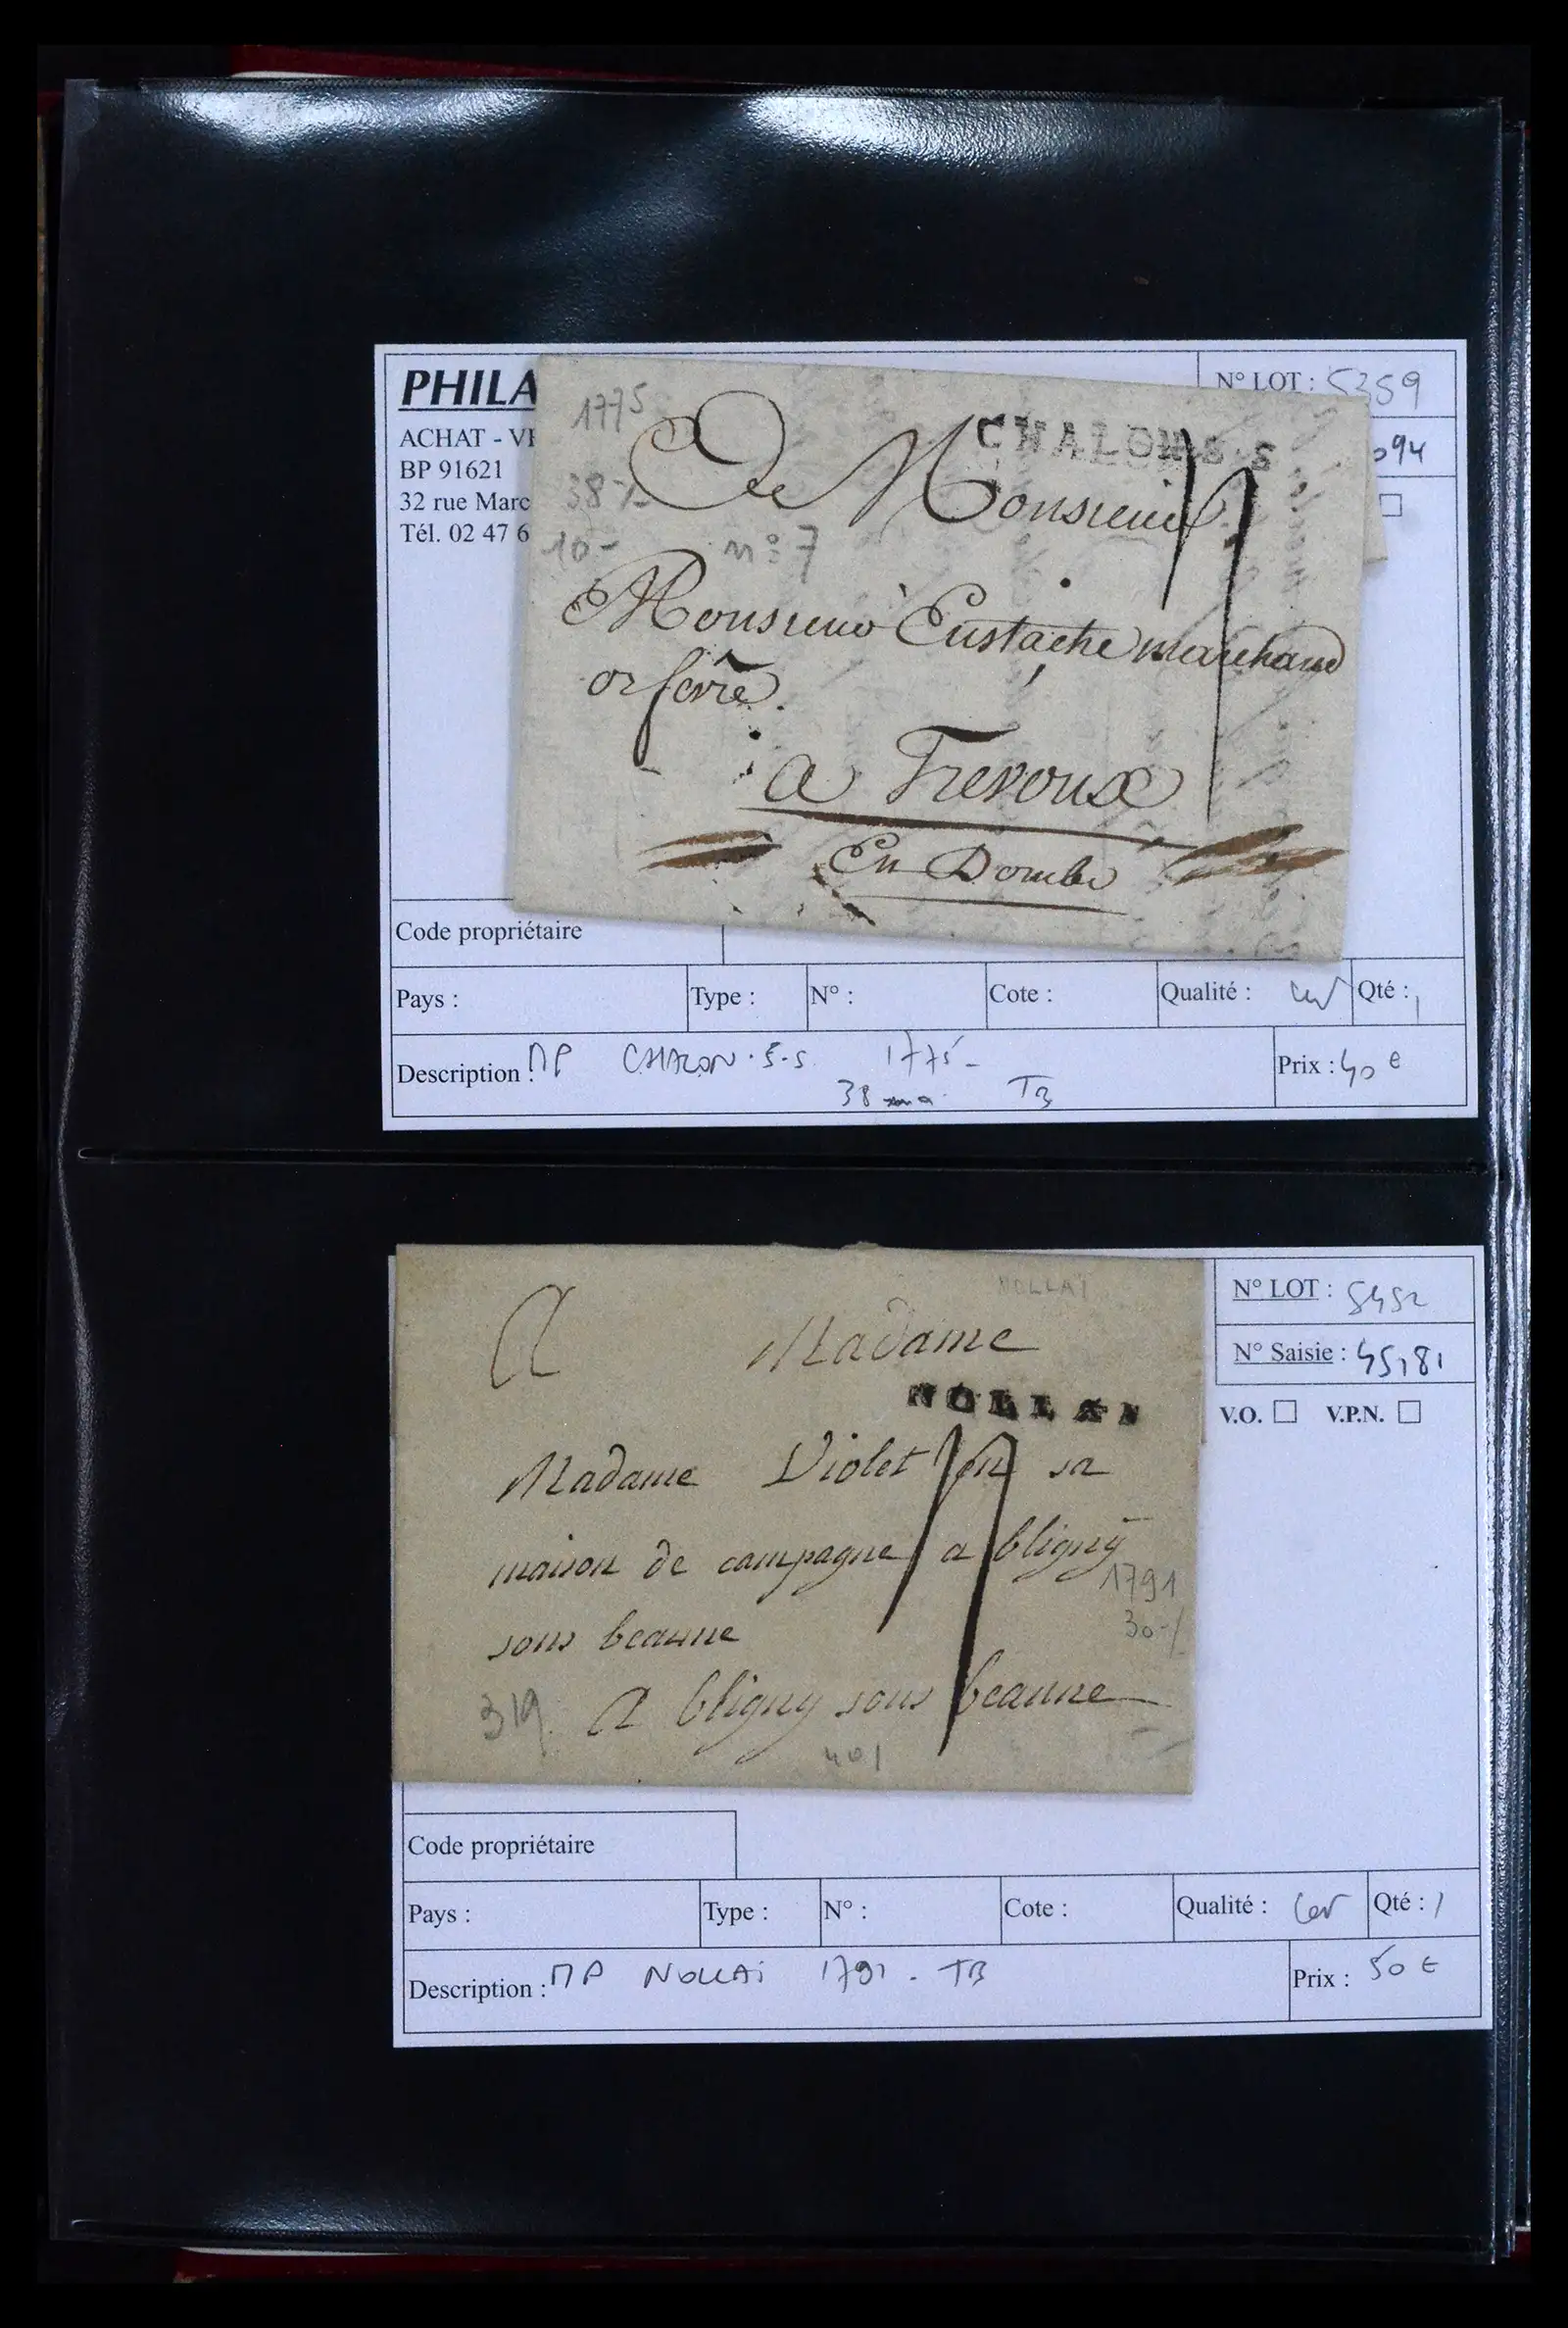 PHILA
ACHAT - VE
BP 91621
32 rue Marc
Tél. 02 47 6
N° LOT : 5359
094
1775
CHALON S.S
De Monsieur
38
10-
n° 7
Monsieur Eustache marchand
orfevre.
a Trevoux
En Dombe
Code propriétaire
Pays :
Type :
N° :
Cote :
Qualité :
Qté : 1
Description : MP CHALON.S.S. 1775 -
38 TB
Prix : 40 €
NOLLAI
A Madame
NOLLAI
Madame Violet en sa
maison de campagne a bligny
1791
sous beaune
30-/
319
A bligny sous beaune
401
N° LOT : 5452
N° Saisie : 45181
V.O. V.P.N.
Code propriétaire
Pays :
Type :
N° :
Cote :
Qualité :
Qté : 1
Description : MP NOLLAi 1791 - TB
Prix : 50 €